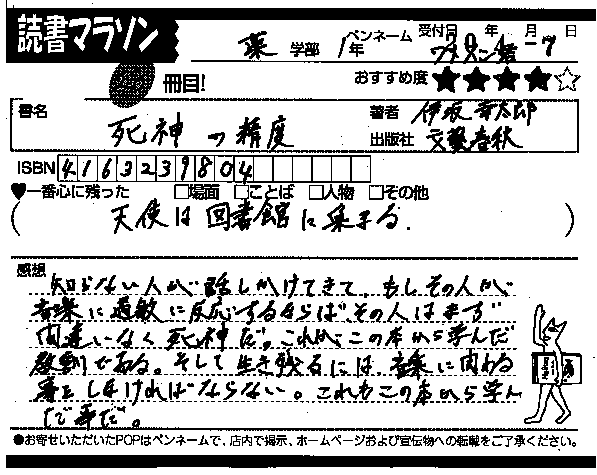 読書マラソン
薬 学部 1年 ペンネーム 受付日 年 月 日
冊目! おすすめ度 ★★★★☆
書名 死神の精度 著者 伊坂幸太郎
出版社 文藝春秋
ISBN 4163239804
♥一番心に残った □場面 □ことば □人物 □その他
(天使は図書館に集まる.)
感想
知らない人が話しかけてきて、もしその人が
音楽に過敏に反応するならば、その人はまず
間違いなく死神だ。これが、この本から学んだ
教訓である。そして生き残るには、音楽に関わる
事をしなければならない。これもこの本から学ん
だ事だ。
●お寄せいただいたPOPはペンネームで、店内で掲示、ホームページおよび宣伝物への転載をご了承ください。